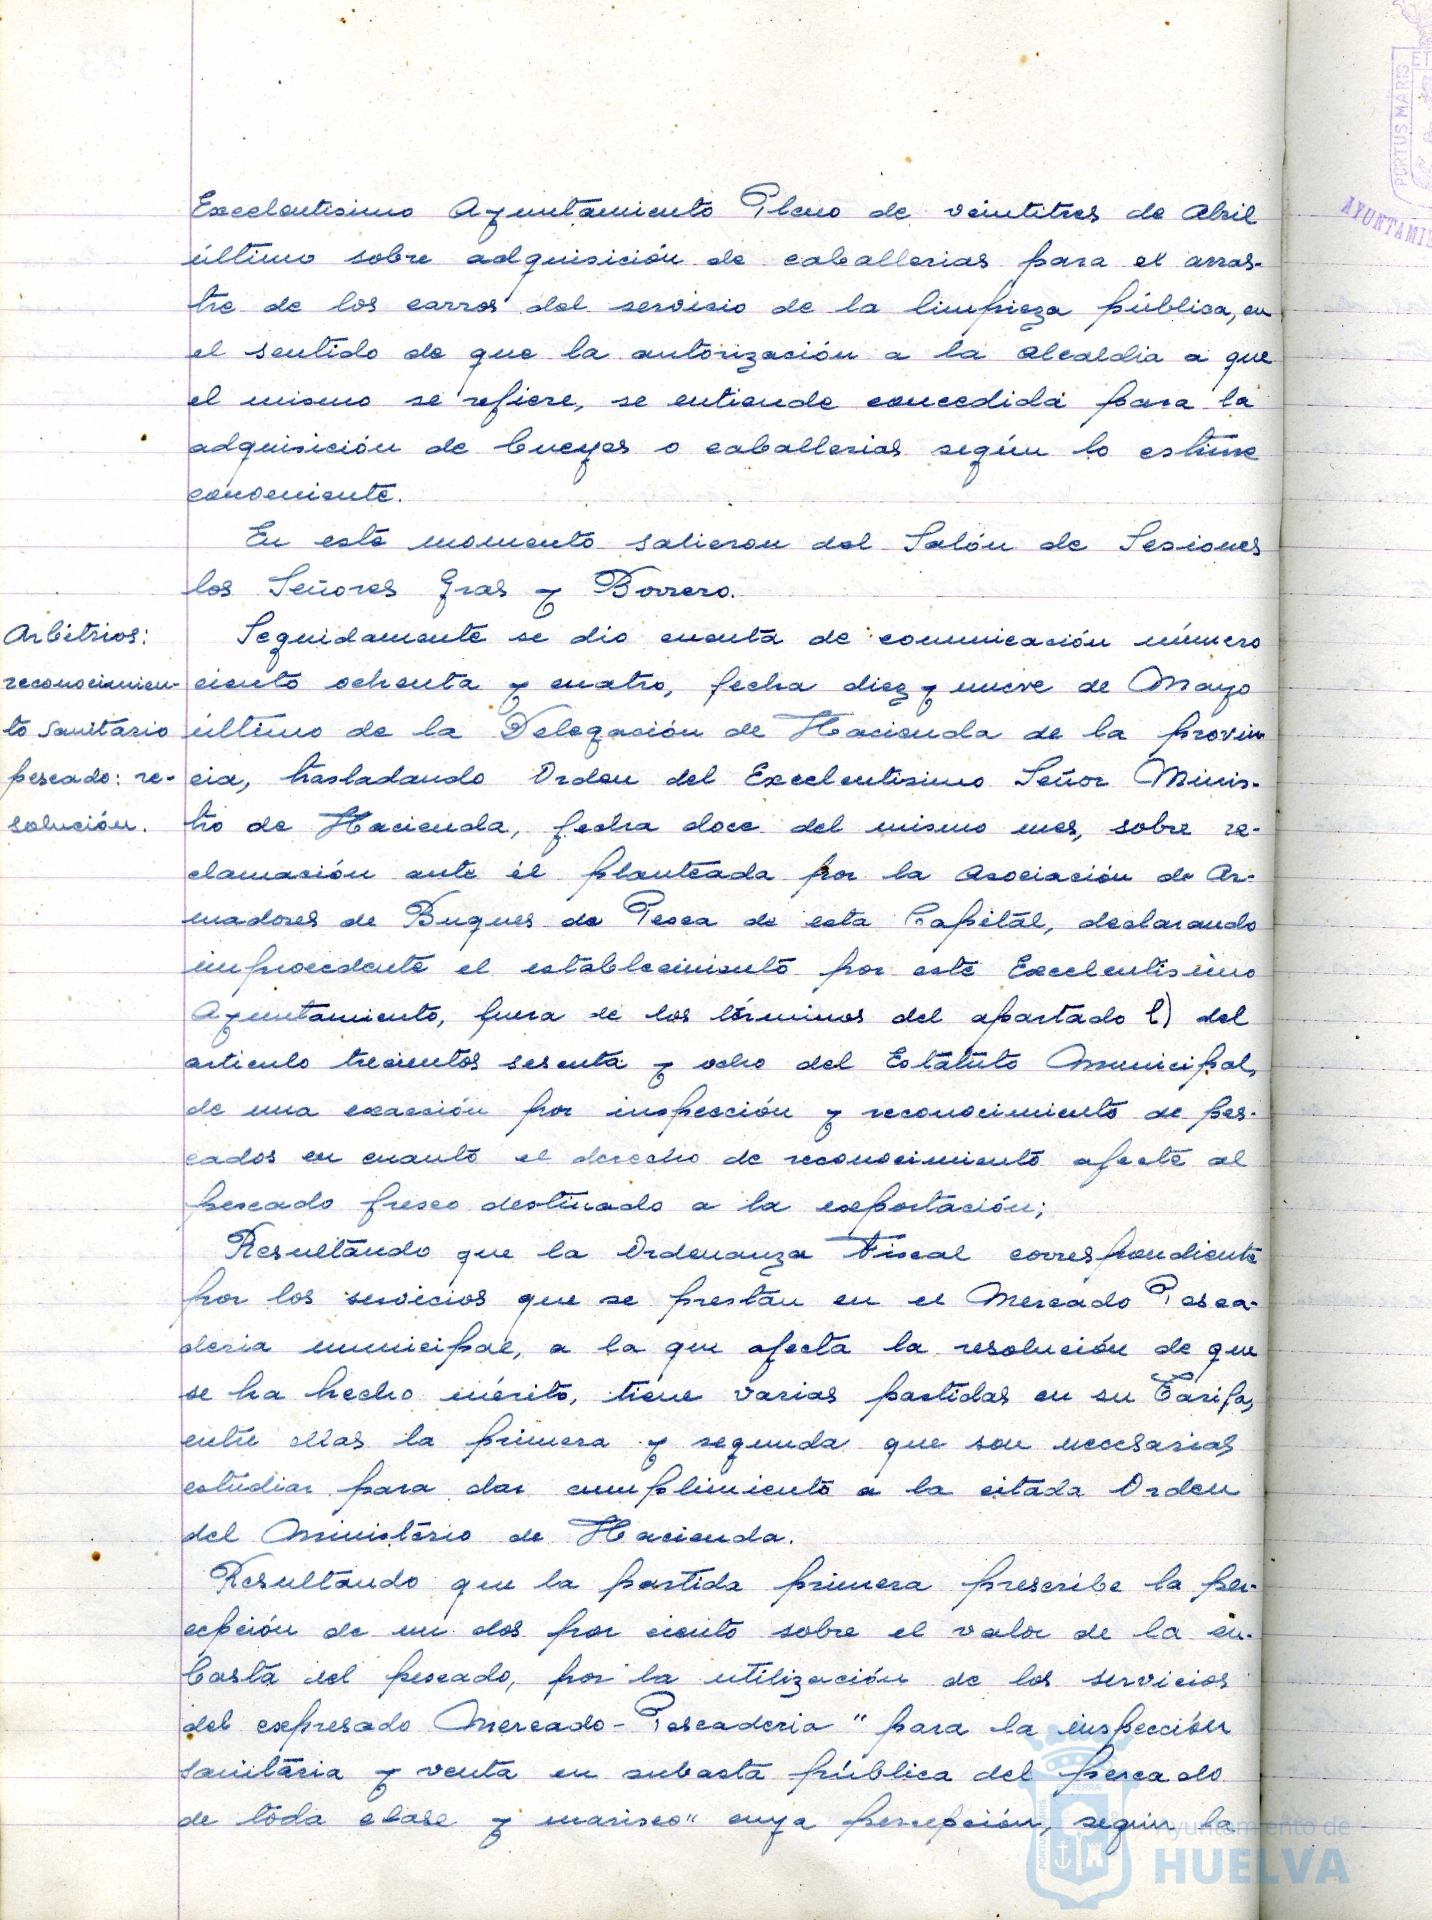 Excelentisimo Ayuntamiento Pleno de veintitres de Abril
último sobre adquisición de caballerias para el arras-
tre de los carros del servicio de la limpieza pública, en
el sentido de que la autorización a la Alcaldia a que
el mismo se refiere, se entiende concedida para la
adquisición de bueyes o caballerias según lo estime
conveniente.
En este momento salieron del Salón de Sesiones
los Señores Gras y Borrero.
Arbitrios:
reconocimien-
to sanitario
pescado: re-
solución.
Seguidamente se dio cuenta de comunicación número
ciento ochenta y cuatro, fecha diez y nueve de Mayo
último de la Delegación de Hacienda de la provin
cia, trasladando Orden del Excelentisimo Señor Minis-
tro de Hacienda, fecha doce del mismo mes, sobre re-
clamación ante él planteada por la Asociación de Ar-
madores de Buques de Pesca de esta Capital, declarando
improcedente el establecimiento por este Excelentisimo
Ayuntamiento, fuera de los términos del apartado l) del
articulo trecientos sesenta y ocho del Estatuto Municipal,
de una exacción por inspección y reconocimiento de pes-
cados en cuanto el derecho de reconocimiento afecte al
pescado fresco destinado a la exportación;
Resultando que la Ordenanza Fiscal correspondiente
por los servicios que se prestan en el Mercado Pesca-
deria municipal, a la que afecta la resolución de que
se ha hecho mérito, tiene varias partidas en su Tarifa,
entre ellas la primera y segunda que son necesarias
estudiar para dar cumplimiento a la citada Orden
del Ministerio de Hacienda.
Resultando que la partida primera prescribe la per-
cepción de un dos por ciento sobre el valor de la su-
basta del pescado, por la utilización de los servicios
del expresado Mercado-Pescaderia "para la inspección
sanitaria y venta en subasta pública del pescado
de toda clase y marisco" cuya percepción, según la
PORTUS MARIS
ET
AYUNTAMIE
Ayuntamiento de
HUELVA